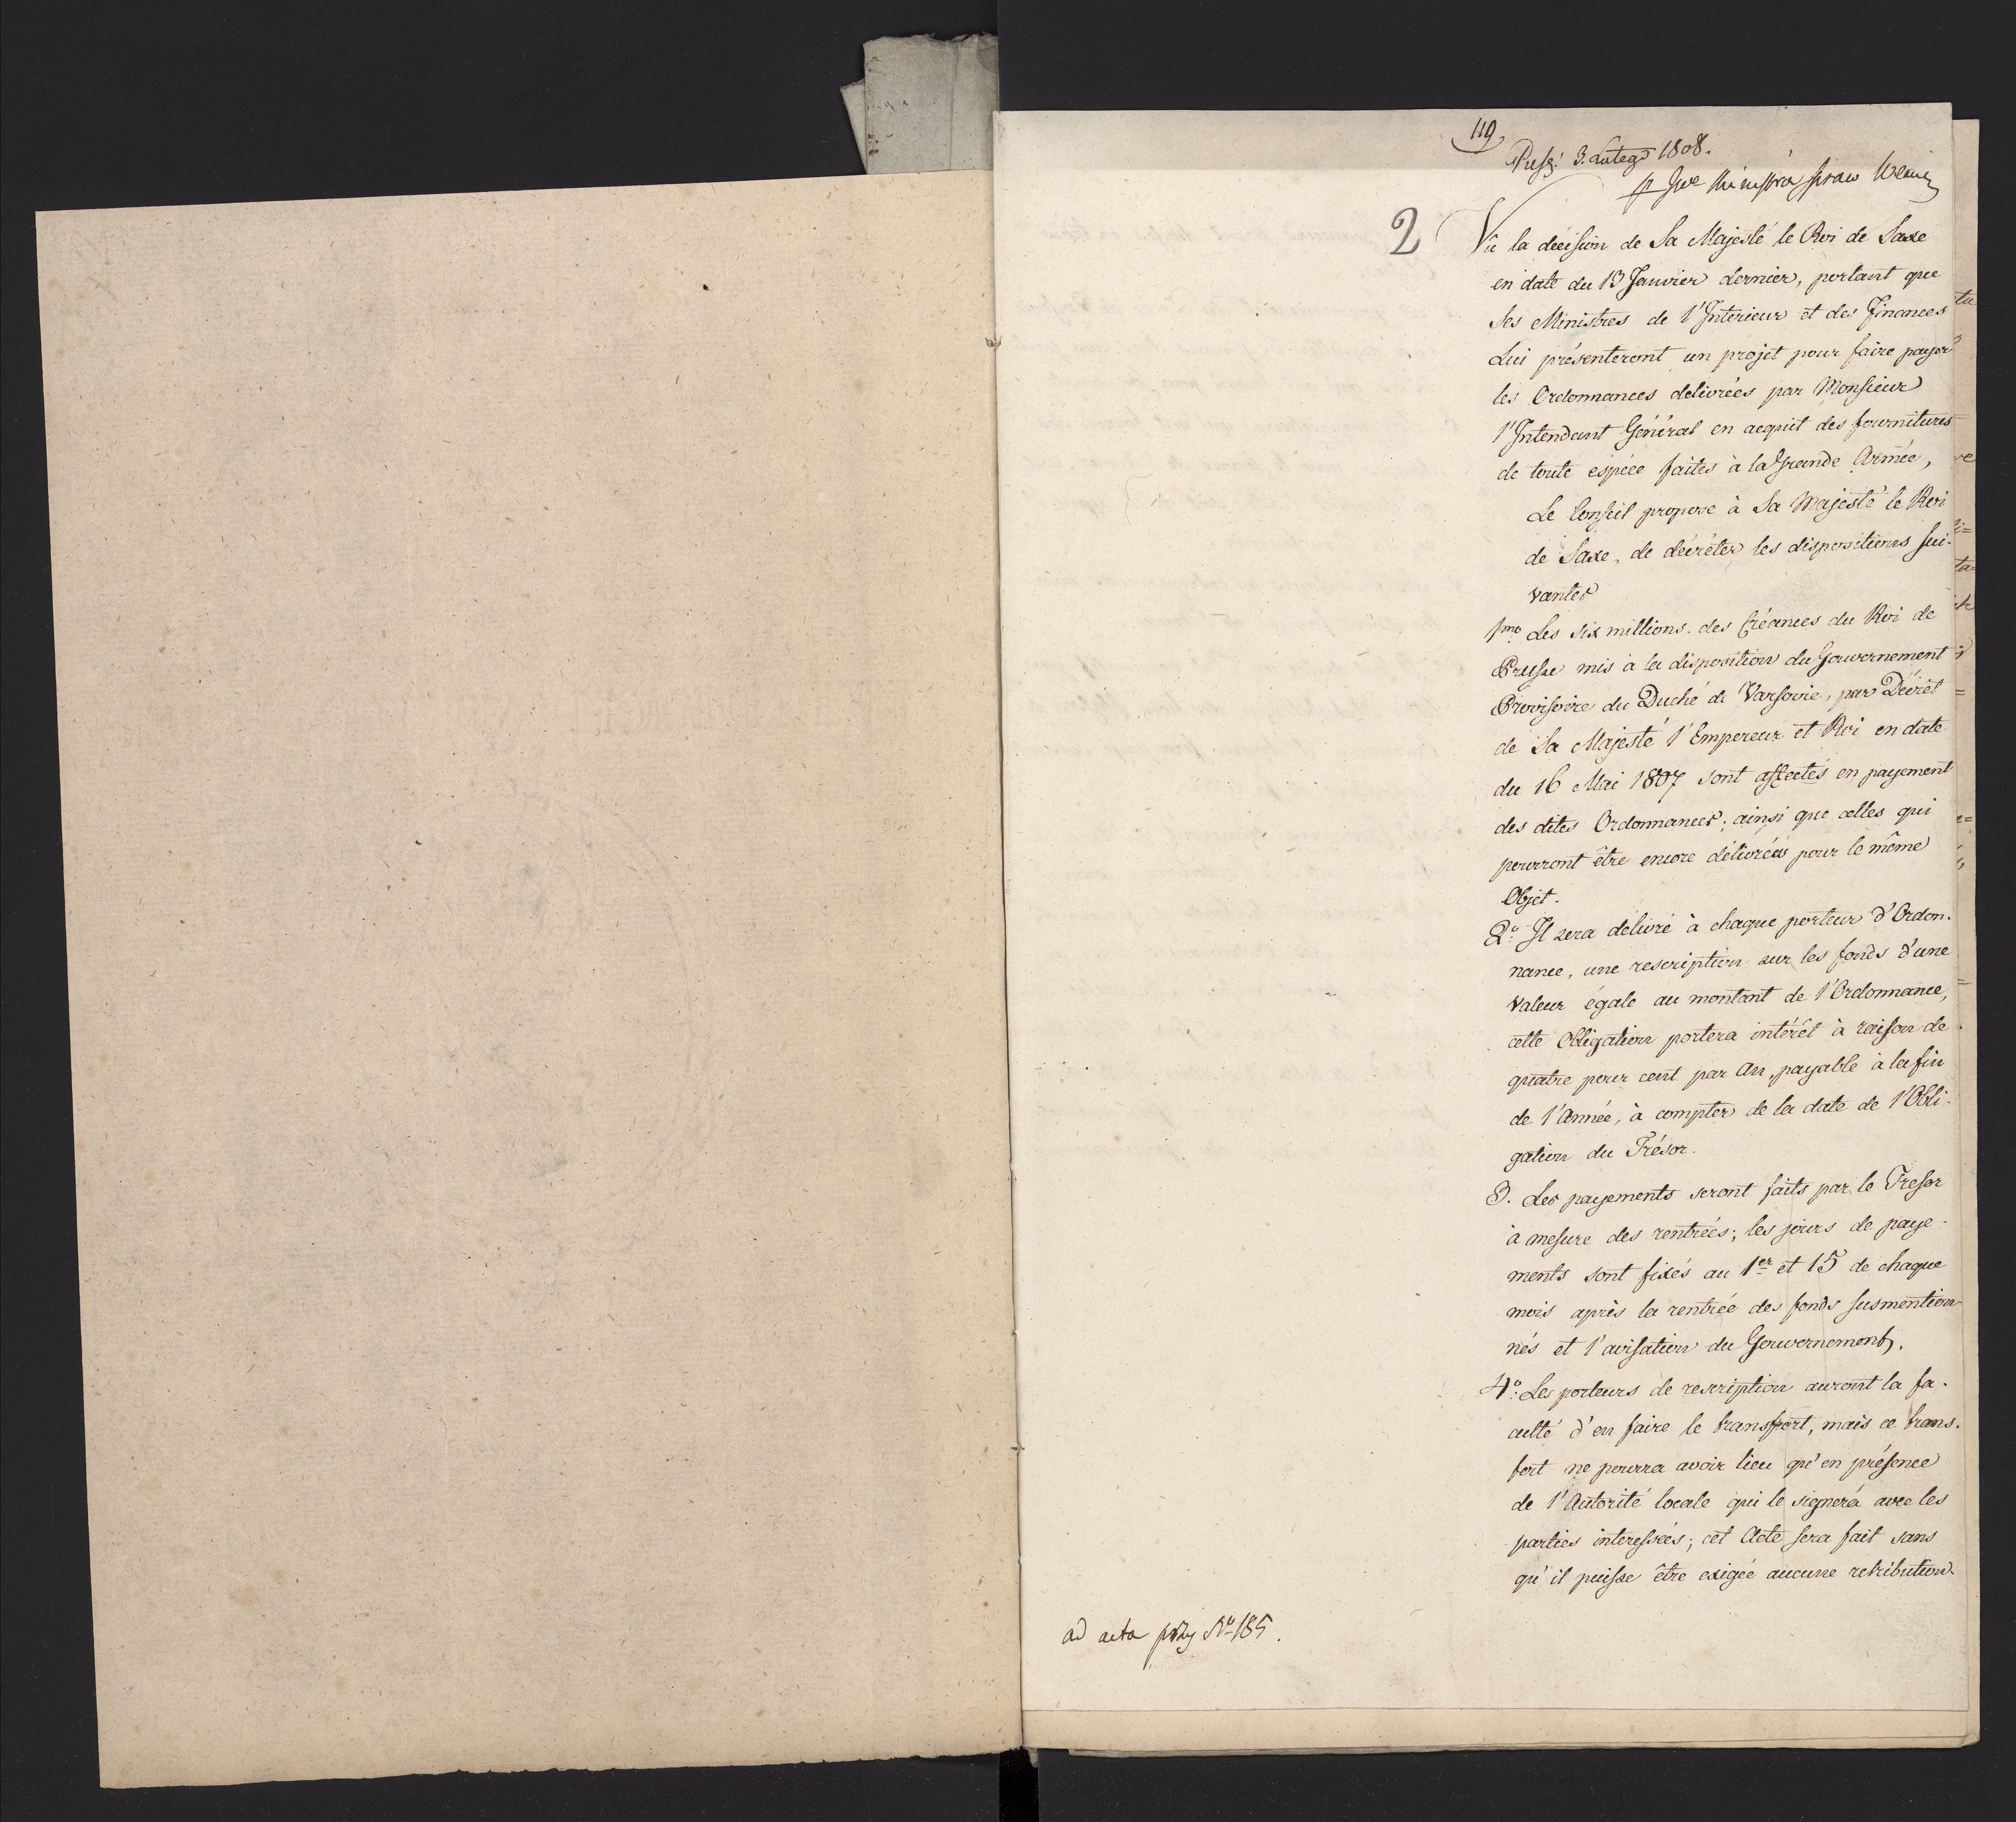 119
3. Lutego 1808.
Ministra spraw
2
Vu la décision de Sa Majesté le Roi de Saxe
en date du 13 Janvier dernier, portant que
Ses Ministres de l'Interieur et des Finances
Lui présenteront un projet pour faire payer
les Ordonnances delivrées par Monsieur
l'Intendant Général en acquit des fournitures
de toute espéce faites à la Grande Armée,
Le Conseil propose à Sa Majesté le Roi
de Saxe, de décréter les dispositions sui-
vantes
1mo Les six millions des Créances du Roi de
Prusse mis à la disposition du Gouvernement
Provisoire du Duché de Varsovie, par Décrét
de Sa Majesté l'Empereur et Roi en date
du 16 Mai 1807 sont affectés en payement
des dites Ordonnances; ainsi que celles qui
pourront être encore délivrées pour le même
Objet.
2o Il sera délivré à chaque porteur d'Ordon-
nance, une rescription sur les fonds d'une
Valeur égale au montant de l'Ordonnance,
cette Obligation portera intérêt à raison de
quatre pour cent par An, payable à la fin
de l'Année, à compter de la date de l'Obli-
gation du Trésor.
3. Les payements seront faits par le Tresor
à mesure des rentrées; les jours de paye-
ments sont fixés au 1er et 15 de chaque
mois après la rentrée des fonds susmention-
nés et l'avisation du Gouvernement.
4o Les porteurs de rescription auront la fa-
culté d'en faire le transfort, mais ce trans-
fort ne pourra avoir lieu qu'en présence
de l'Autorité locale qui le signera avec les
parties interessées; cet Acte sera fait sans
qu'il puisse être exigée aucune retribution.
ad acta przy No 185.